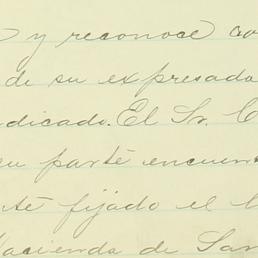 y reconoce co
de su expresado
dicado. El Sr. C
su parte encuent
te fijado el l
Hacienda de San